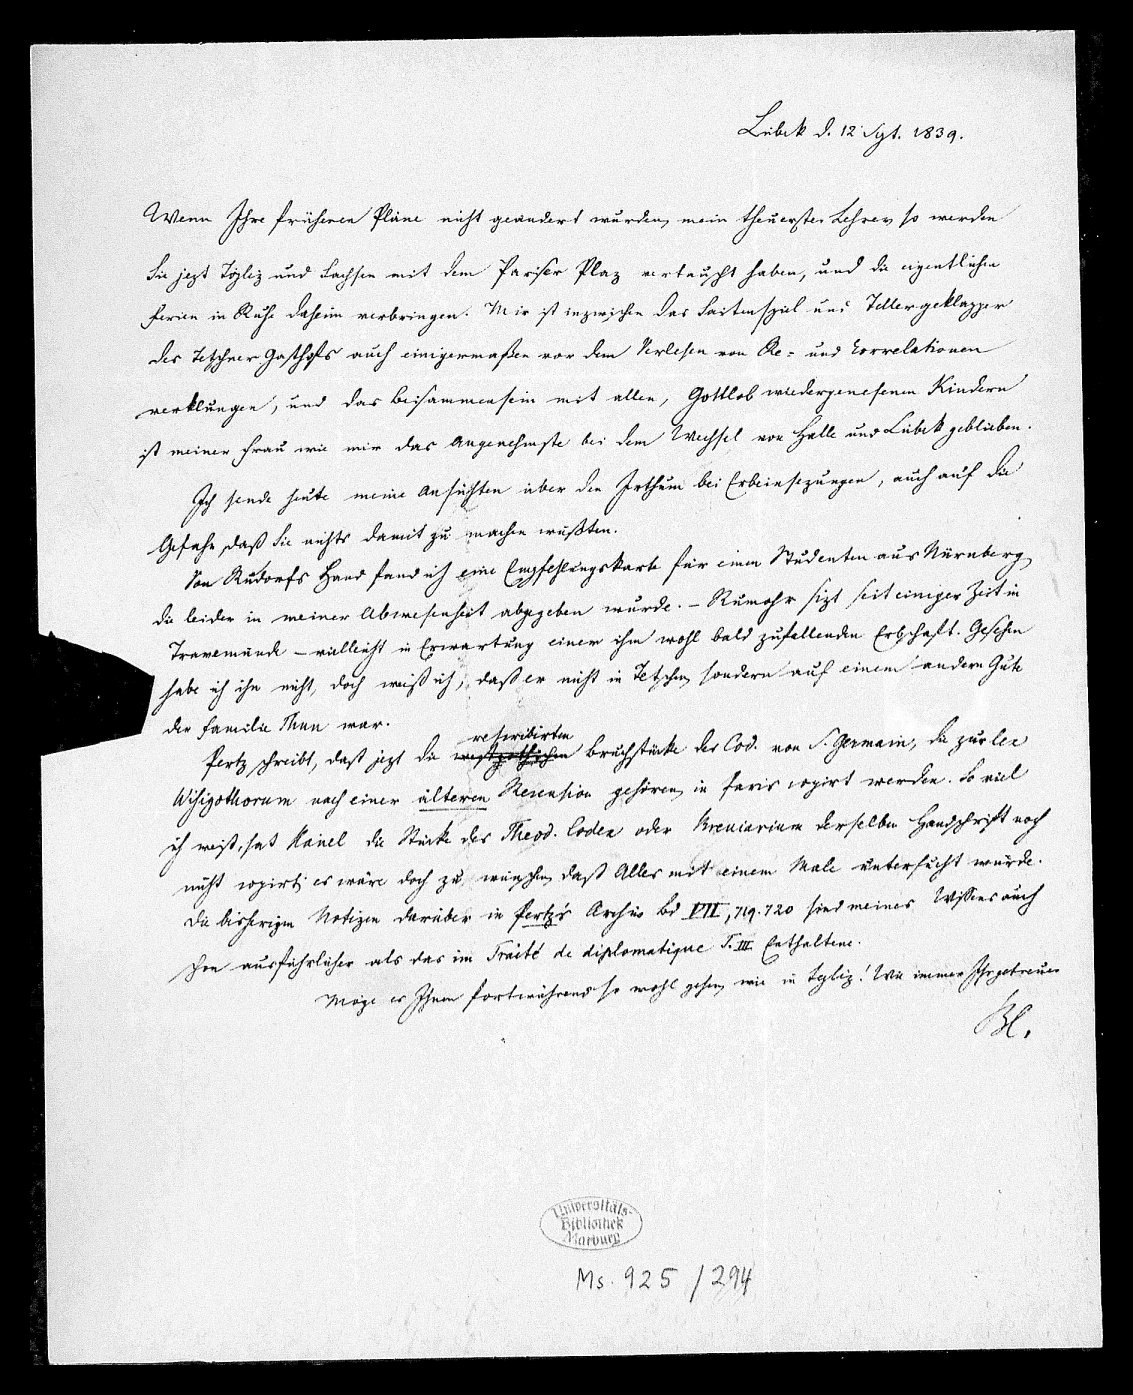 Lübek d. 12 Spt. 1839.
Wenn Ihre früheren Pläne nicht geändert wurden, mein theuerster Lehrer, so werden
Sie jezt Tepliz und Sachsen mit dem Pariser Plaz vertauscht haben, und die eigentlichen
Ferien in Ruhe daheim verbringen. Mir ist inzwischen das Saitenspiel und Tellergeklapper
des Tetschner Gasthofs auch einigermaßen vor dem Verlesen von Re- und Correlationen
verklungen, und das Beisammensein mit allen, Gottlob wiedergenesenen Kindern
ist meiner Frau wie mir das Angenehmste bei dem Wechsel von Halle und Lübek geblieben.
Ich sende heute meine Ansichten über den Irrthum bei Erbeinsezungen, auch auf die
Gefahr, daß Sie nichts damit zu machen wüßten.
Von Rudorffs Hand fand ich eine Empfehlungskarte für einen Studenten aus Nürnberg,
die leider in meiner Abwesenheit abgegeben wurde. – Rumohr sizt seit einiger Zeit in
Travemünde – vielleicht in Erwartung einer ihm wohl bald zufallenden Erbschaft. Gesehen
habe ich ihn nicht, doch weiß ich, daß er nicht in Tetschen, sondern auf einem andern Gute
der Familie Thun war.
rescribirten
Pertz schreibt, daß jezt die westgothischen Bruchstücke des Cod. von S. Germain, die zur lex
Wisigothorum nach einer älteren Recension gehören, in Paris copirt werden. So viel
ich weiß, hat Hänel die Stücke des Theod. Codex oder Breviarium derselben Handschrift noch
nicht copirt; es wäre doch zu wünschen, daß Alles mit einem Male untersucht würde.
Die bisherigen Notizen darüber in Pertz's Archiv Bd VII, 719.720 sind meines Wissens auch
schon ausführlicher als das im Traité de diplomatique T. III Enthaltene.
Möge es Ihnen fortwährend so wohl gehen, wie in Tepliz! Wie immer Ihr getreuer
Bl.
Universitäts-
Bibliothek
Marburg
Ms. 925/294